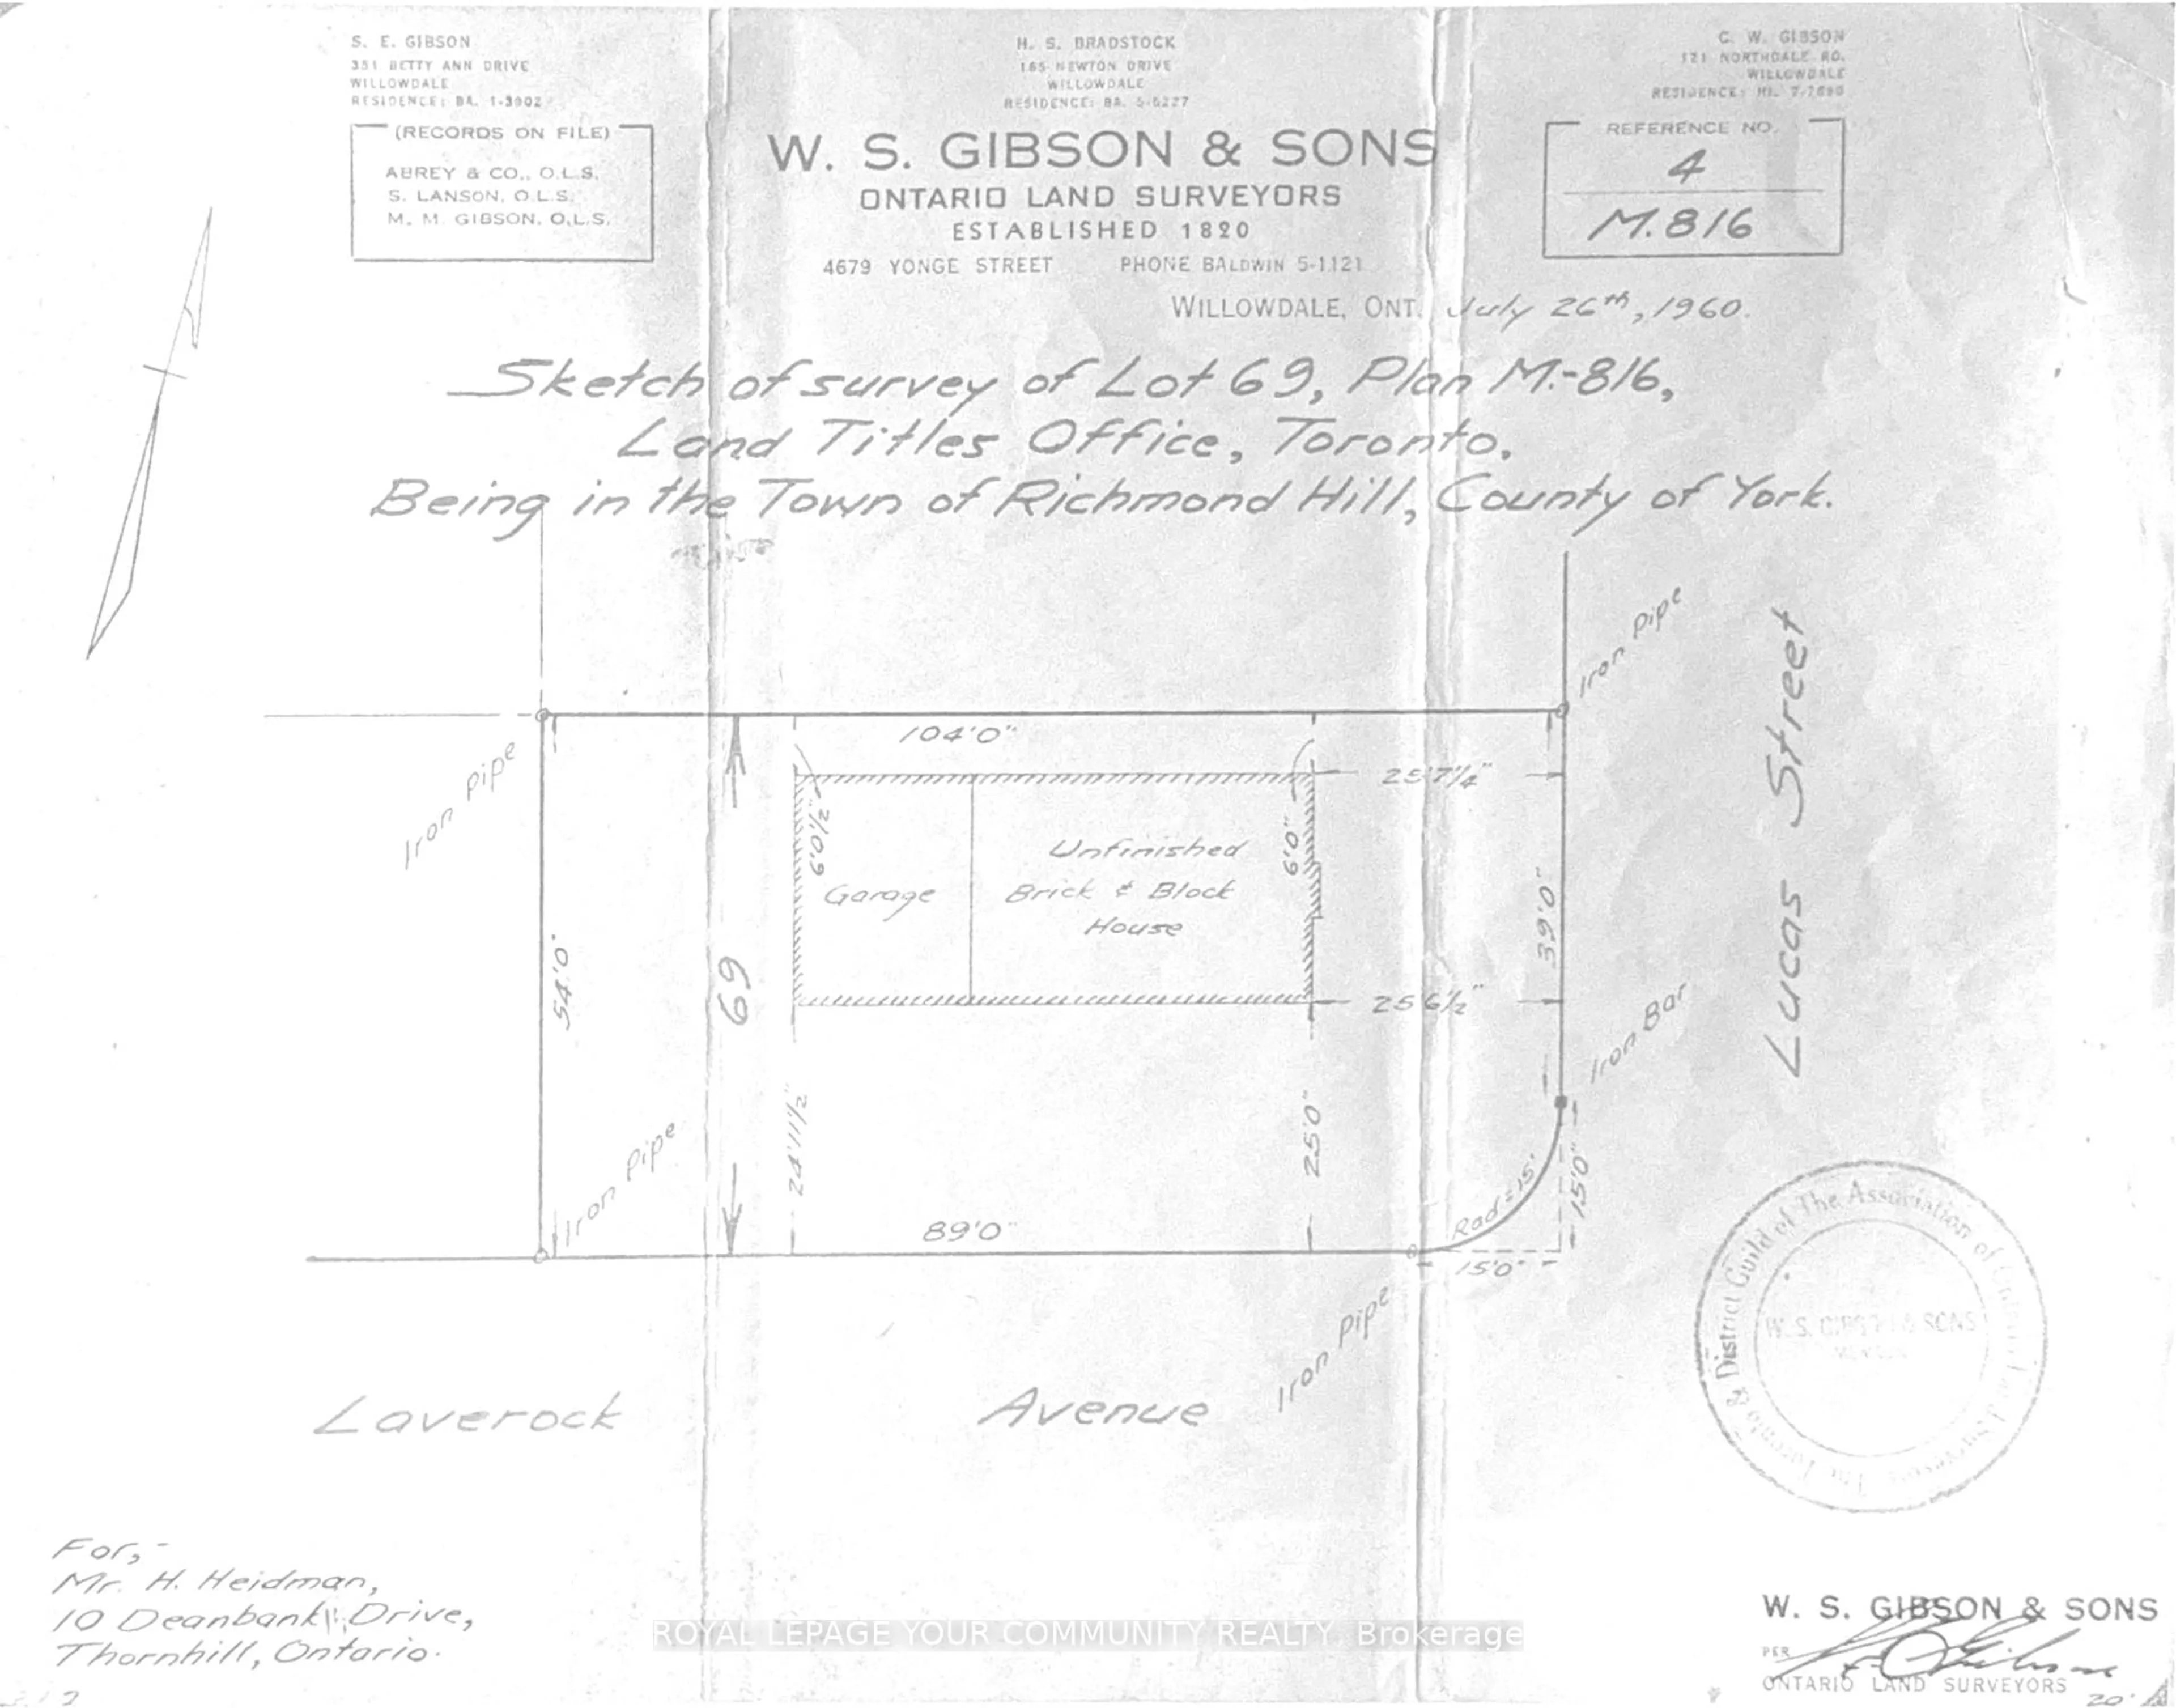 S. E. GIBSON
351 BETTY ANN DRIVE
WILLOWDALE
RESIDENCE: BA. 1-3902
H. S. BRADSTOCK
165 NEWTON DRIVE
WILLOWDALE
RESIDENCE: BA. 5-6227
C. W. GIBSON
121 NORTHDALE RD.
WILLOWDALE
RESIDENCE: HI. 7-7690
(RECORDS ON FILE)
ABREY & CO., O.L.S.
S. LANSON, O.L.S.
M. M. GIBSON, O.L.S.
W. S. GIBSON & SONS
ONTARIO LAND SURVEYORS
ESTABLISHED 1820
4679 YONGE STREET PHONE BALDWIN 5-1121
REFERENCE NO.
4
M.816
WILLOWDALE, ONT. July 26th, 1960.
Sketch of survey of Lot 69, Plan M.-816,
Land Titles Office, Toronto.
Being in the Town of Richmond Hill, County of York.
Iron Pipe
104'0"
Iron Pipe
25'7¼"
6'0½"
6'0"
Unfinished
Garage
Brick & Block
House
39'0"
Lucas Street
54'0"
69
25'6½"
Iron Bar
24'11½"
25'0"
Iron Pipe
Rad=15'
15'0"
89'0"
15'0"
Iron Pipe
Laverock Avenue
Toronto & District Guild of The Association of
W. S. GIBSON & SONS
For,-
Mr. H. Heidman,
10 Deanbank Drive,
Thornhill, Ontario.
ROYAL LEPAGE YOUR COMMUNITY REALTY, Brokerage
W. S. GIBSON & SONS
PER
ONTARIO LAND SURVEYORS
20'